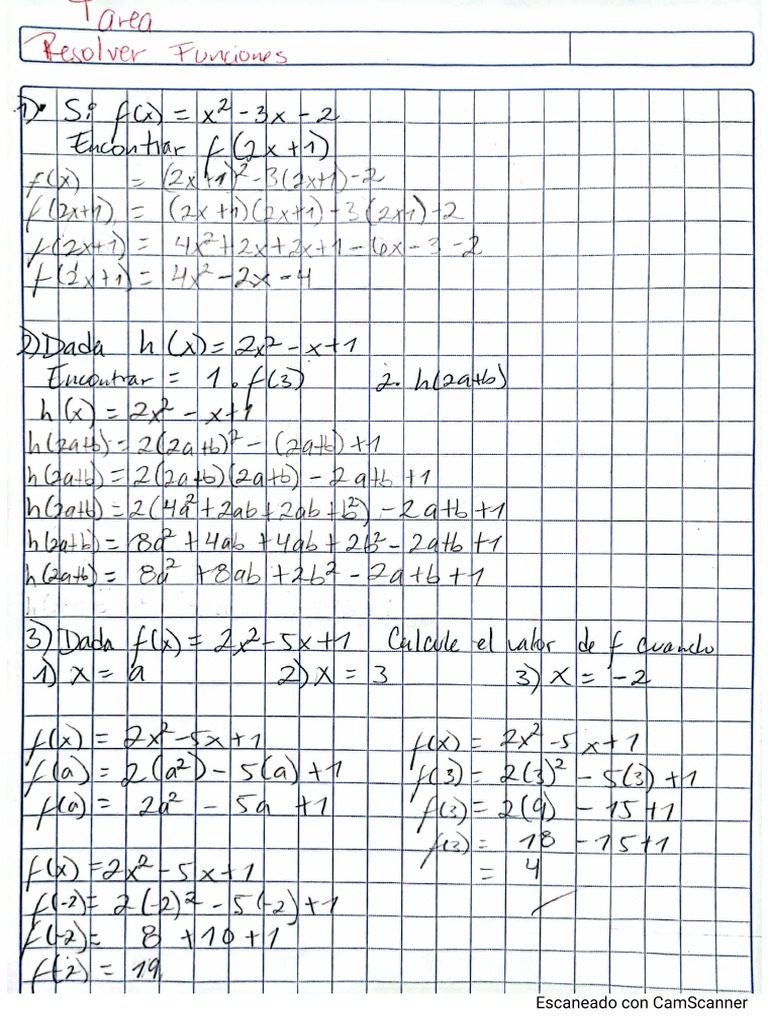 Tarea
Resolver Funciones
1) Si f(x) = x² - 3x - 2
Encontrar f(2x+1)
f(x) = (2x+1)² - 3(2x+1) - 2
f(2x+1) = (2x+1)(2x+1) - 3(2x1) - 2
f(2x+1) = 4x² + 2x + 2x + 1 - 6x - 3 - 2
f(2x+1) = 4x² - 2x - 4
2) Dada h(x) = 2x² - x + 1
Encontrar = 1. f(3) 2. h(2a+b)
h(x) = 2x² - x+1
h(2a+b) = 2(2a+b)² - (2a+b) + 1
h(2a+b) = 2(2a+b)(2a+b) - 2a+b +1
h(2a+b) = 2(4a² + 2ab + 2ab + b²) - 2a+b +1
h(2a+b) = 8a² + 4ab + 4ab + 2b² - 2a+b +1
h(2a+b) = 8a² + 8ab + 2b² - 2a+b+1
3) Dada f(x) = 2x² - 5x + 1 Calcule el valor de f cuando
1) x = a 2) x = 3 3) x = -2
f(x) = 2x² - 5x + 1
f(a) = 2(a²) - 5(a) + 1
f(a) = 2a² - 5a + 1
f(x) = 2x² - 5x + 1
f(3) = 2(3)² - 5(3) + 1
f(3) = 2(9) - 15 + 1
f(3) = 18 - 15 + 1
= 4
f(x) = 2x² - 5x + 1
f(-2) = 2(-2)² - 5(-2) + 1
f(-2) = 8 + 10 + 1
f(-2) = 19
Escaneado con CamScanner